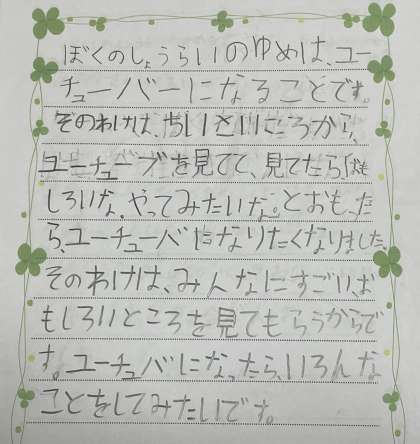 ぼくのしょうらいのゆめは、ユー
チューバーになることです。
そのわけは、ちいさいころから、
ユーチューブを見てて、見てたらおも
しろいな。やってみたいな。とおもった
ら、ユーチューバになりたくなりました。
そのわけは、みんなにすごい、お
もしろいところを見てもらうからで
す。ユーチュバになったら、いろんな
ことをしてみたいです。